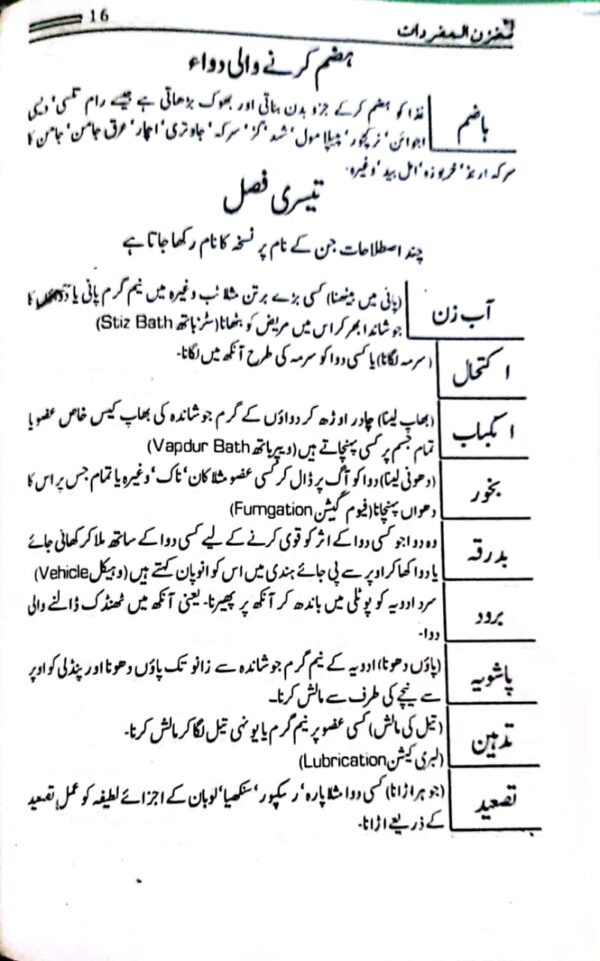 16
مخزن المفردات
ہضم کرنے والی دواء
ہاضم
غذا کو ہضم کرکے جزو بدن بناتی اور بھوک بڑھاتی ہے جیسے رام تلسی‘ دیسی
اجوائن‘ نرکچور‘ پیپلا مول‘ شہد‘ گز‘ سرکہ‘ جاوتری‘ اچار‘ عرق جامن‘ جامن کا
سرکہ ارنڈ‘ خربوزہ‘ امل بید‘ وغیرہ۔
تیسری فصل
چند اصطلاحات جن کے نام پر نسخہ کا نام رکھا جاتا ہے
آب زن
(پانی میں بیٹھنا) کسی بڑے برتن مثلا ٹب وغیرہ میں نیم گرم پانی یا دواؤں کا
جوشاندا بھر کر اس میں مریض کو بٹھانا (سٹز باتھ Stiz Bath)
اکتحال
(سرمہ لگانا) یا کسی دوا کو سرمہ کی طرح آنکھ میں لگانا۔
انکباب
(بھاپ لینا) چادر اوڑھ کر دواؤں کے گرم جوشاندہ کی بھاپ کیس خاص عضو یا
تمام جسم پر کسی پہنچاتے ہیں (ویپر باتھ Vapdur Bath)
بخور
(دھونی لینا) دوا کو آگ پر ڈال کر کسی عضو مثلا کان‘ ناک‘ وغیرہ یا تمام جس پر اس کا
دھواں پہنچانا (فیوم گیشن Fumgation)
بدرقہ
وہ دوا جو کسی دوا کے اثر کو قوی کرنے کے لیے کسی دوا کے ساتھ ملا کر کھائی جائے
یا دوا کھا کر اوپر سے پی جائے ہندی میں اس کو انوپان کہتے ہیں (وہیکل Vehicle)
برود
سرد ادویہ کو پوٹلی میں باندھ کر آنکھ پر پھیرنا۔ یعنی آنکھ میں ٹھنڈک ڈالنے والی
دوا۔
پاشویہ
(پاؤں دھونا) ادویہ کے نیم گرم جوشاندہ سے زانو تک پاؤں دھونا اور پنڈلی کو اوپر
سے نیچے کی طرف سے مالش کرنا۔
تدہین
(تیل کی مالش) کسی عضو پر نیم گرم یا یونہی تیل لگا کر مالش کرنا۔
(لبری کیشن Lubrication)
تصعید
(جوہر اڑانا) کسی دوا مثلا پارہ‘ رسکپور‘ سنکھیا‘ لوبان کے اجزائے لطیفہ کو عمل تصعید
کے ذریعے اڑانا۔